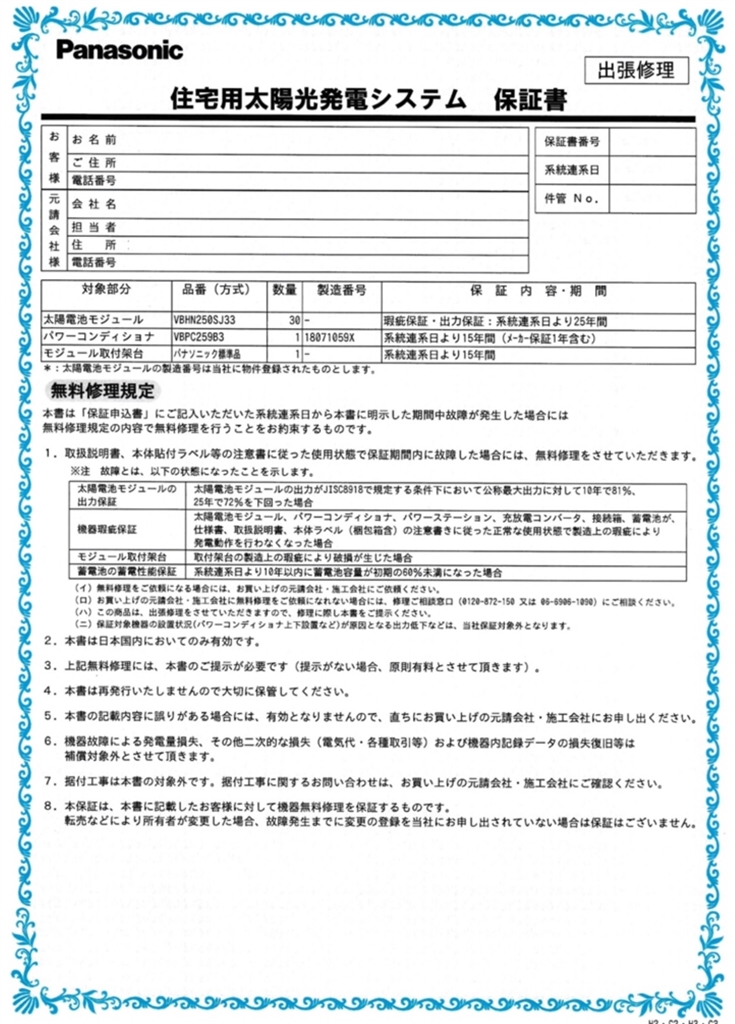 Panasonic
出張修理
住宅用太陽光発電システム 保証書
お客様
お名前
ご住所
電話番号
元請会社様
会社名
担当者
住 所
電話番号
保証書番号
系統連系日
件管 No.
対象部分 品番(方式) 数量 製造番号 保証内容・期間
太陽電池モジュール VBHN250SJ33 30 - 瑕疵保証・出力保証:系統連系日より25年間
パワーコンディショナ VBPC259B3 1 18071059X 系統連系日より15年間(メーカー保証1年含む)
モジュール取付架台 パナソニック標準品 1 - 系統連系日より15年間
*:太陽電池モジュールの製造番号は当社に物件登録されたものとします。
無料修理規定
本書は「保証申込書」にご記入いただいた系統連系日から本書に明示した期間中故障が発生した場合には
無料修理規定の内容で無料修理を行うことをお約束するものです。
1.取扱説明書、本体貼付ラベル等の注意書に従った使用状態で保証期間内に故障した場合には、無料修理をさせていただきます。
※注 故障とは、以下の状態になったことを示します。
太陽電池モジュールの出力保証 太陽電池モジュールの出力がJISC8918で規定する条件下において公称最大出力に対して10年で81%、
25年で72%を下回った場合
機器瑕疵保証 太陽電池モジュール、パワーコンディショナ、パワーステーション、充放電コンバータ、接続箱、蓄電池が、
仕様書、取扱説明書、本体ラベル(梱包箱含)の注意書きに従った正常な使用状態で製造上の瑕疵により
発電動作を行わなくなった場合
モジュール取付架台 取付架台の製造上の瑕疵により破損が生じた場合
蓄電池の蓄電性能保証 系統連系日より10年以内に蓄電池容量が初期の60%未満になった場合
(イ)無料修理をご依頼になる場合には、お買い上げの元請会社・施工会社にご依頼ください。
(ロ)お買い上げの元請会社・施工会社に無料修理をご依頼になれない場合には、修理ご相談窓口(0120-872-150 又は 06-6906-1090)にご相談ください。
(ハ)この商品は、出張修理をさせていただきますので、修理に際し本書をご提示ください。
(ニ)保証対象機器の設置状況(パワーコンディショナ上下設置など)が原因となる出力低下などは、当社保証対象外となります。
2.本書は日本国内においてのみ有効です。
3.上記無料修理には、本書のご提示が必要です(提示がない場合、原則有料とさせて頂きます)。
4.本書は再発行いたしませんので大切に保管してください。
5.本書の記載内容に誤りがある場合には、有効となりませんので、直ちにお買い上げの元請会社・施工会社にお申し出ください。
6.機器故障による発電量損失、その他二次的な損失(電気代・各種取引等)および機器内記録データの損失復旧等は
補償対象外とさせて頂きます。
7.据付工事は本書の対象外です。据付工事に関するお問い合わせは、お買い上げの元請会社・施工会社にご確認ください。
8.本保証は、本書に記載したお客様に対して機器無料修理を保証するものです。
転売などにより所有者が変更した場合、故障発生までに変更の登録を当社にお申し出されていない場合は保証はございません。